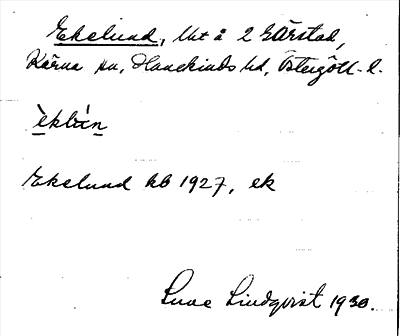 Ekelund, lht å 2 Gärstad,
Kärna sn, Hanekinds hd, Östergötl. l.
èklùn
Ekelund kb 1927, ek
Sune Lindqvist 1930.